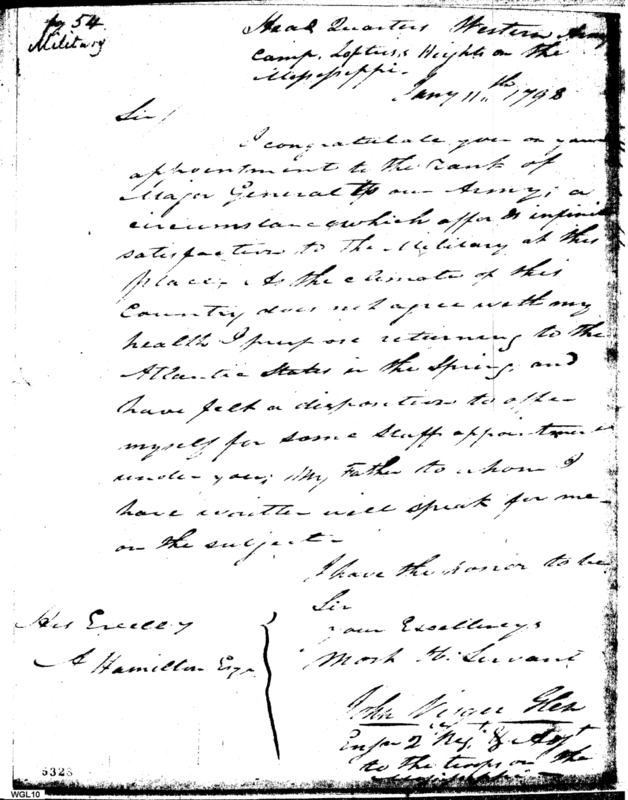 pg 54
Military
Head Quarters Western Army
Camp, Loftus's Heights on the
Mississippi.
Jany 11th 1798
Sir!
I congratulate you on your
appointment to the rank of
Major General to our Army; a
circumstance which affords infinite
satisfaction to the Military at this
place; As the climate of this
Country does not agree with my
health I purpose returning to the
Atlantic States in the Spring and
have felt a disposition to offer
myself for some Staff appointment
under you; My Father to whom I
have written will speak for me
on the subject.
I have the honor to be
Sir
your Excellency's
Most H. Servant
John Visger Glen
Ensn 2 Regt & Adjt
to the troops on the
Mississippi
His Excelley
A Hamilton Esqr
5328
WGL10